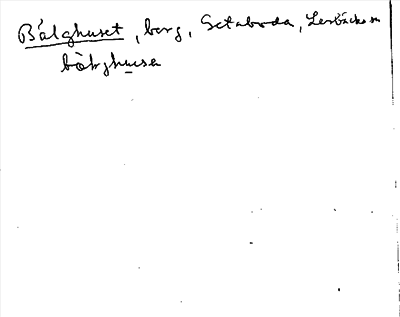 Bålghuset, berg, Getaboda, Lerbäcks sn
bålghusa